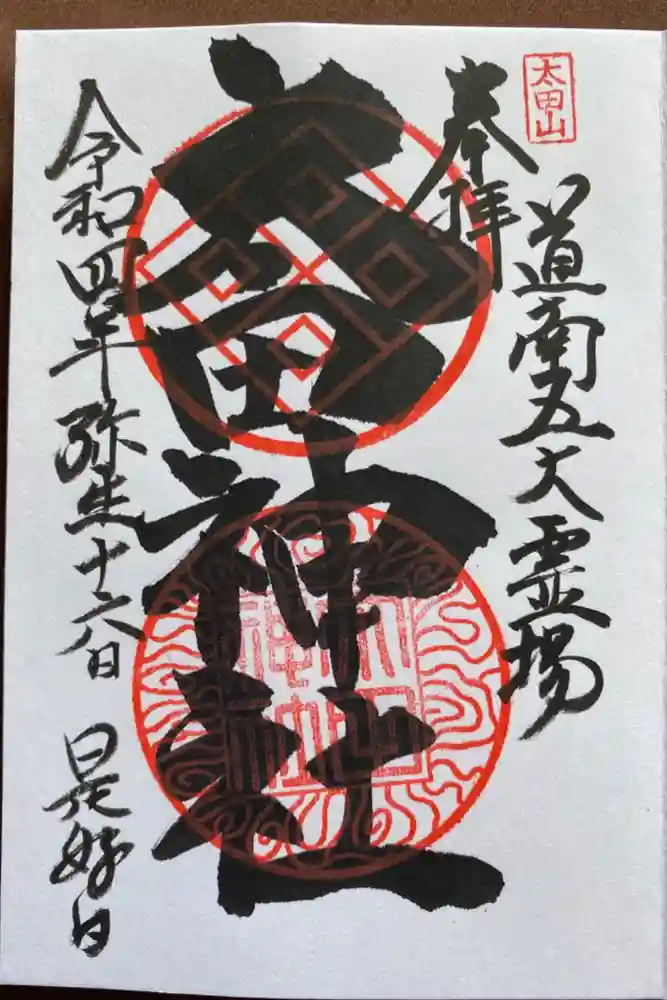 太田山
奉拝
道南五大霊場
太田神社
令和四年弥生十六日
是好日